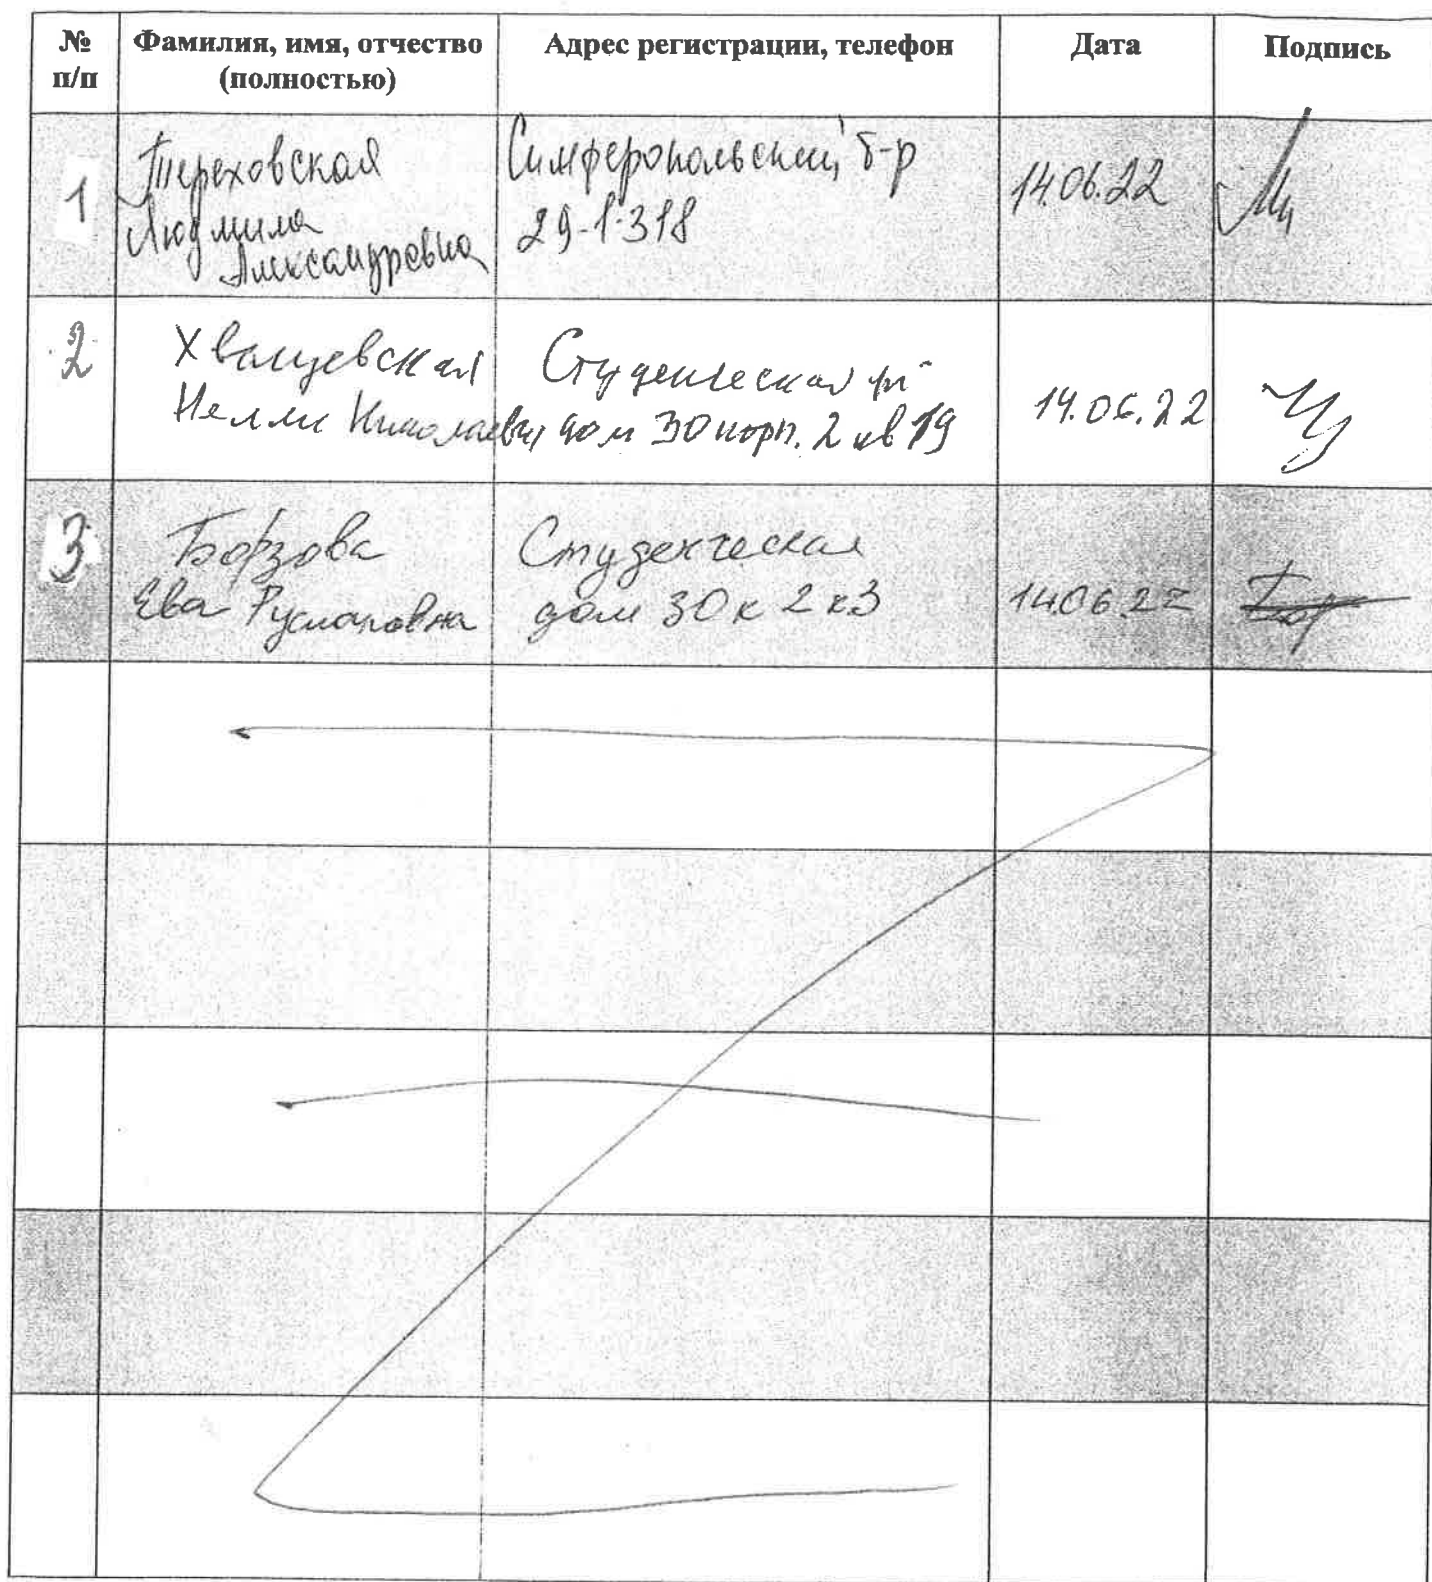 № п/п
Фамилия, имя, отчество (полностью)
Адрес регистрации, телефон
Дата
Подпись
1
Тереховская
Людмила
Александровна
Симферопольский б-р
29-1-318
14.06.22
2
Нелли Николаевна
Студенческая
дом 30 корп. 2 кв 19
14.06.22
3
Борзова
Ева Руслановна
Студенческая
дом 30 к 2 к3
14.06.22